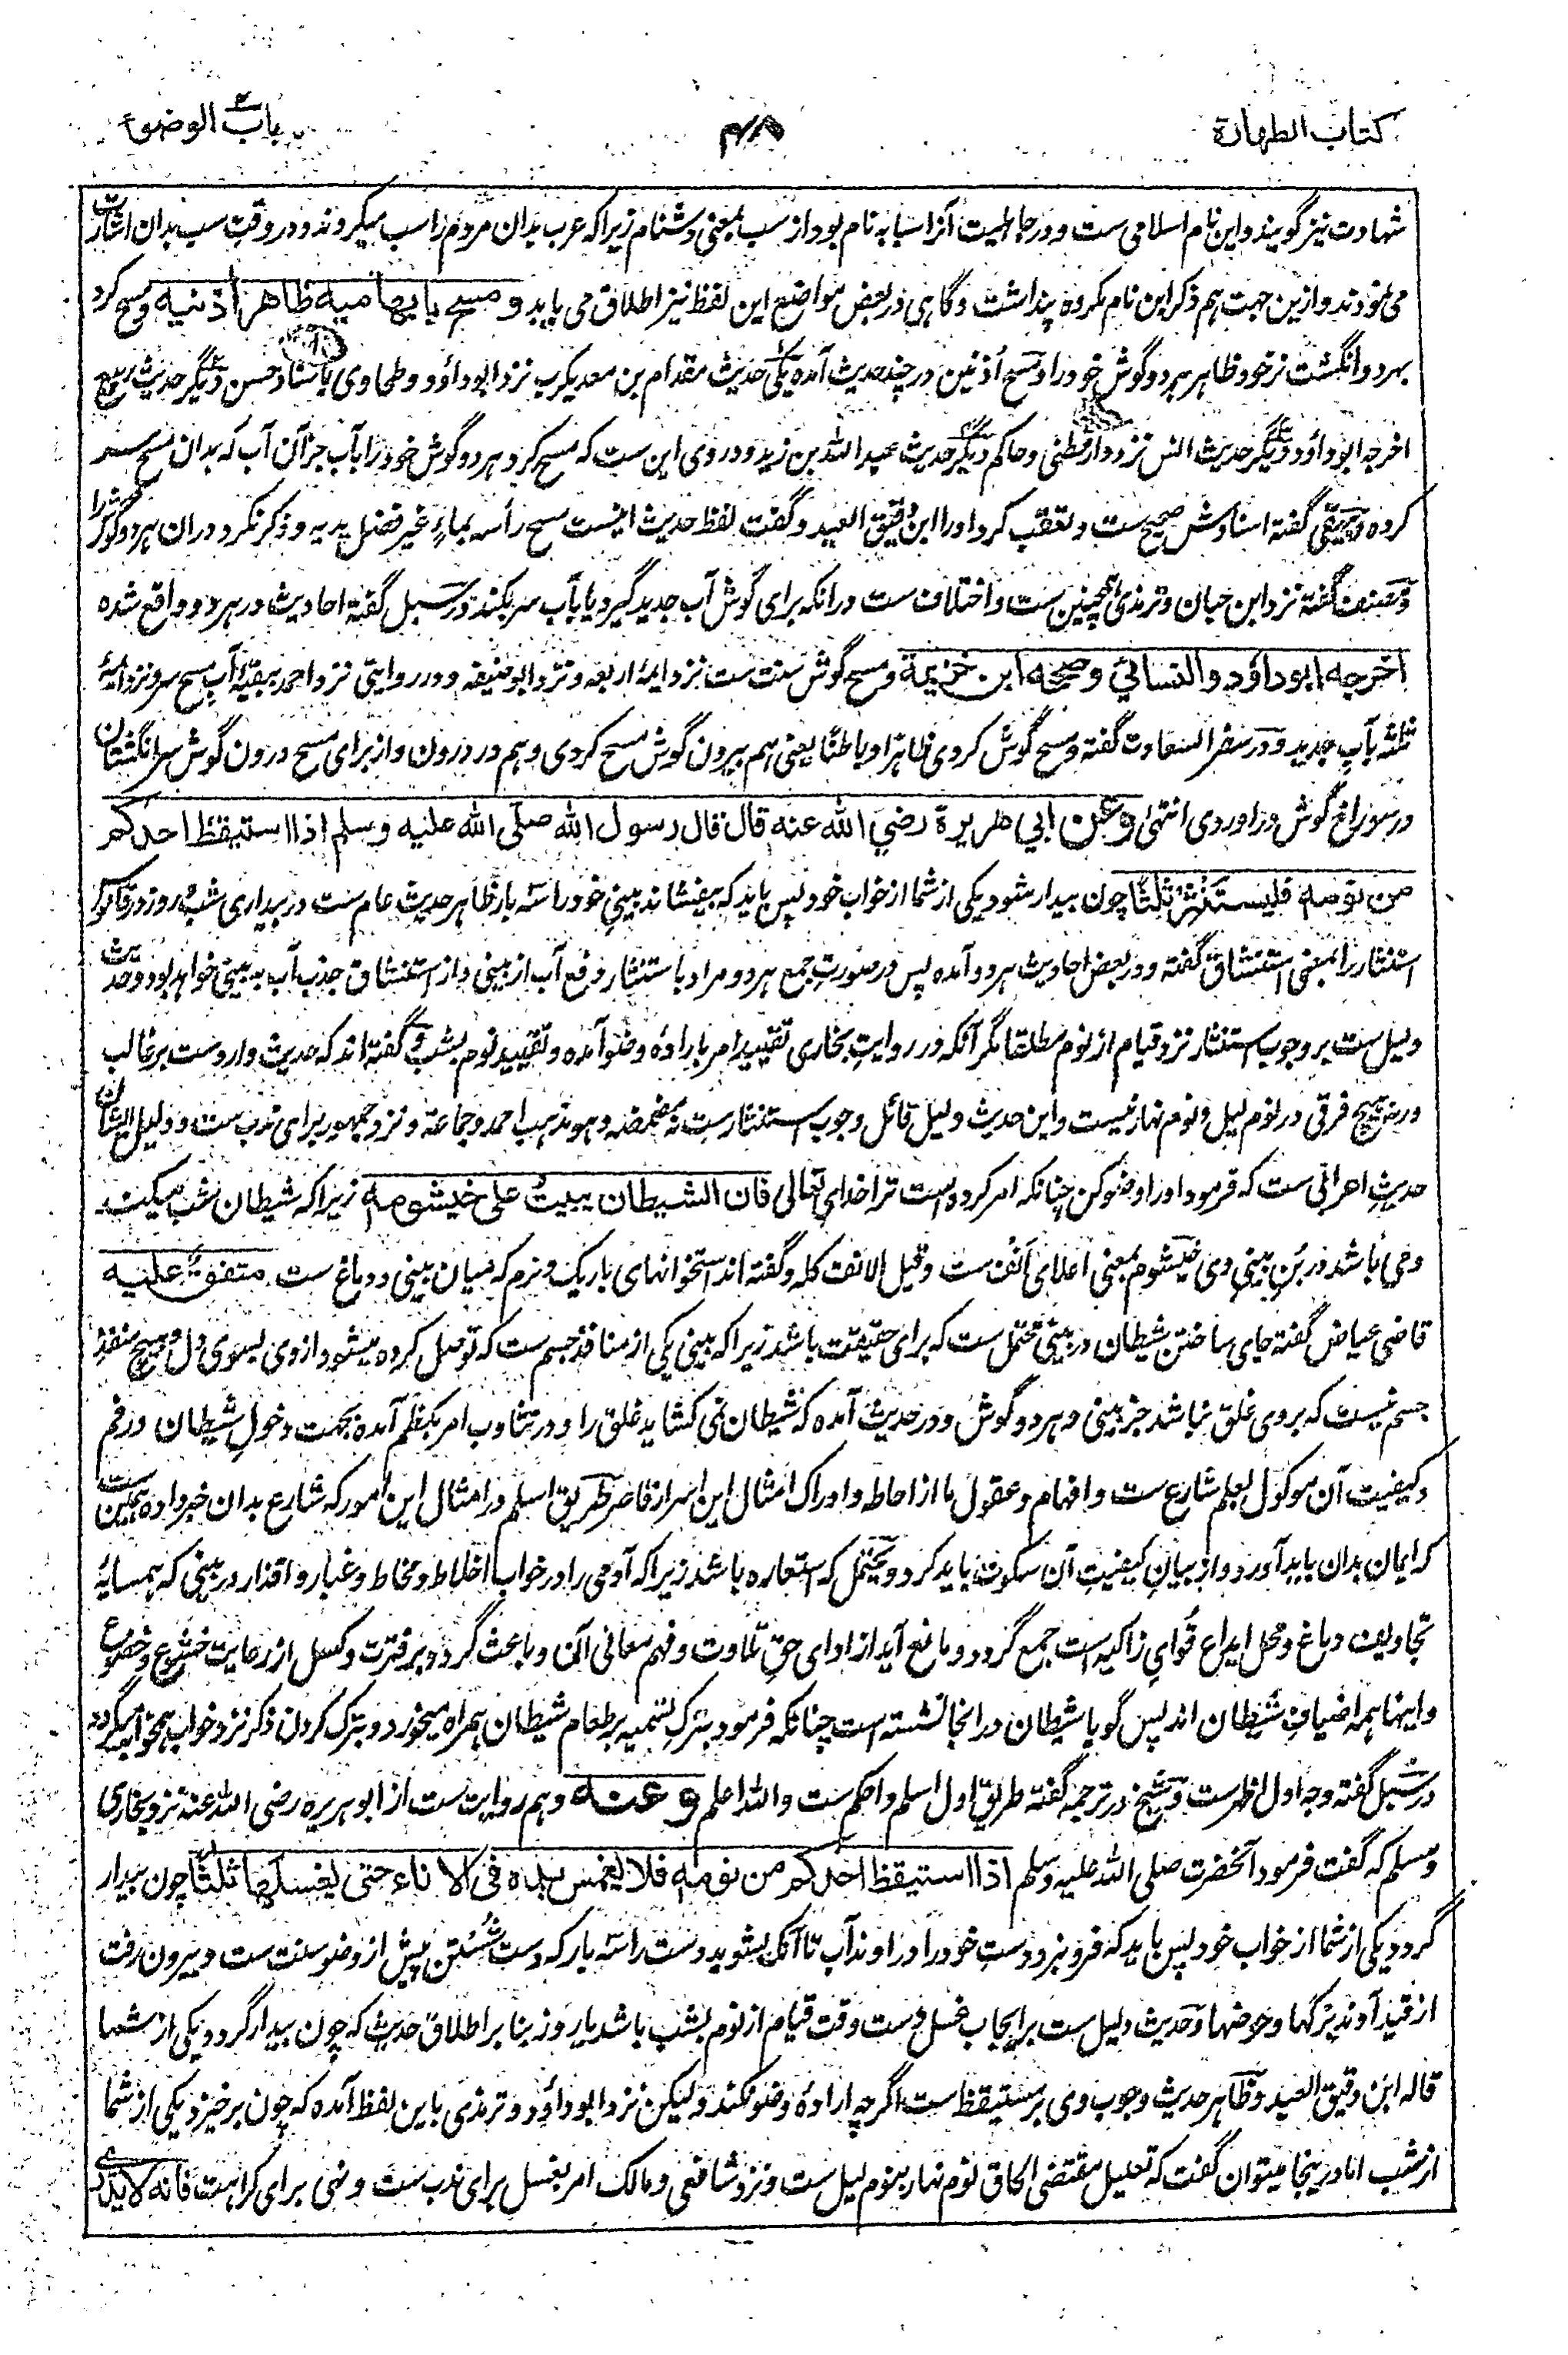 کتاب الطهارة ۴۸ باب الوضوء
شهادت نیز گویند و این نام اسلامی ست و در جاهلیت آنرا سبابه نام بود از سب بمعنی دشنام زیرا که عرب بدان مردم را سب میکروند و در وقت سب بدان اشارت
می نمودند و ازین جهت هم ذکر این نام مکروه پنداشت و گاهی در بعض مواضع این لفظ نیز اطلاق می یابد و مسح بابهامیه ظاهر اذنیه و مسح کرد
بهر دو انگشت نر خود ظاهر هر دو گوش خود را و مسح اُذنین در چند حدیث آمده یکی حدیث مقدام بن معدیکرب نزد ابو داؤد و طحاوی باسناد حسن دیگر حدیث ربیع
اخرجه ابو داؤد و دیگر حدیث انس نزد دارقطنی و حاکم دیگر حدیث عبد الله بن زید و در وی این ست که مسح کرد هر دو گوش خود را بآب جز آن آب که بدان مسح سر
کرده و بیهقی گفته اسنادش صحیح ست و تعقب کرد او را ابن دقیق العید و گفت لفظ حدیث اینست مسح رأسه بماءٍ غیر فضل یدیه و ذکر نکرد دران هر دو گوش را
و مصنف گفته نزد ابن حبان و ترمذی همچنین ست و اختلاف ست درانکه برای گوش آب جدید گیرد یا بآب سر بکند و در سبل گفته احادیث در هر دو واقع شده
اخرجه ابو داؤد والنسائي وصححه ابن خزيمة و مسح گوش سنت ست نزد ایمۀ اربعه و نزد ابو حنیفه و در روایتی نزد احمد ببقیۀ آب مسح سر و نزد ایمۀ
ثلثه بآب جدید و در سفر السعادت گفته و مسح گوش کردی ظاهرا و باطنا یعنی هم بیرون گوش مسح کردی و هم در درون و از برای مسح درون گوش سر انگشتان
در سوراخ گوش در آوردی انتهی وعن ابي هريرة رضي الله عنه قال قال رسول الله صلى الله عليه وسلم اذا استيقظ احدكم
من نومه فليستنثر ثلثا چون بیدار شود یکی از شما از خواب خود پس باید که بیفشاند بینی خود را سه بار ظاهر حدیث عام ست در بیداری شب و روز در قاموس
استنثار را بمعنی استنشاق گفته و در بعض احادیث هر دو آمده پس در صورت جمع هر دو مراد باستنثار دفع آب از بینی و از استنشاق جذب آب به بینی خواهد بود و حدیث
دلیل ست بر وجوب استنثار نزد قیام از نوم مطلقا مگر آنکه در روایت بخاری تقیید امر باراده وضو آمده و تقیید نوم بشب و گفته اند که حدیث وارد ست بر غالب
ورنه هیچ فرقی در نوم لیل و نوم نهار نیست و این حدیث دلیل قائل وجوب استنثار ست نه مضمضه و هو مذهب احمد و جماعة و نزد جمهور برای ندب ست و دلیل ایشان
حدیث اعرابی ست که فرمود او را وضو کن چنانکه امر کرده است ترا خدای تعالی فان الشيطان يبيت على خيشومه زیرا که شیطان شب میکند
و می باشد در بُن بینی وی خیشوم بمعنی اعلای انف ست و قیل الانف کله و گفته اند استخوانهای باریک و نرم که میان بینی و دماغ ست متفق عليه
قاضی عیاض گفته جای ساختن شیطان در بینی محتمل ست که برای حقیقت باشد زیرا که بینی یکی از منافذ جسم ست که توصل کرده میشود از وی بسوی دل و هیچ منفذ
جسم نیست که بروی غلق نباشد جز بینی و هر دو گوش و در حدیث آمده که شیطان نمی کشاید غلق را و در تثاوب امر بکظم آمده بجهت دخول شیطان در فم
و کیفیت آن موکول بعلم شارع ست و افهام و عقول ما از احاطه و ادراک امثال این اسرار قاصر طریق اسلم در امثال این امور که شارع بدان خبر داده همین ست
که ایمان بدان باید آورد و از بیان کیفیت آن سکوت باید کرد و یحتمل که استعاره باشد زیرا که آدمی را در خواب اخلاط و مخاط و غبار و اقذار در بینی که همسایۀ
تجاویف دماغ و محل ایداع قوای زاکیه است جمع گردد و مانع آید از ادای حق تلاوت و فهم معانی آن و باعث گردد بر فترت و کسل از رعایت خشوع و خضوع
و اینها همه اضیاف شیطان اند پس گویا شیطان در انجا نشسته است چنانکه فرمود بترک تسمیه بر طعام شیطان همراه میخورد و بترک کردن ذکر نزد خواب همخوابه میگردد
در سبل گفته وجه اول اظهر ست و شیخ در ترجمه گفته طریق اول اسلم و احکم ست والله اعلم وعنه و هم روایت ست از ابو هریره رضی الله عنه نزد بخاری
و مسلم که گفت فرمود آنحضرت صلی الله علیه وسلم اذا استيقظ احدكم من نومه فلا يغمس يده فى الاناء حتى يغسلها ثلثا چون بیدار
گردد یکی از شما از خواب خود پس باید که فرو نبرد دست خود را در آوند آب تا آنکه بشوید دست را سه بار که دست شستن پیش از وضو سنت ست و بیرون رفت
از قید آوند برکها و حوضها و حدیث دلیل ست بر ایجاب غسل دست وقت قیام از نوم بشب باشد یا روز بنا بر اطلاق حدیث که چون بیدار گردد یکی از شما
قاله ابن دقیق العید و ظاهر حدیث وجوب وی بر مستیقظ ست اگر چه اراده وضو نکند و لیکن نزد ابو داؤد و ترمذی باین لفظ آمده که چون برخیزد یکی از شما
از شب اما در ینجا میتوان گفت که تعلیل مقتضی الحاق نوم نهار بنوم لیل ست و نزد شافعی و مالک امر بغسل برای ندب ست و نهی برای کراهت فانه لا يدري